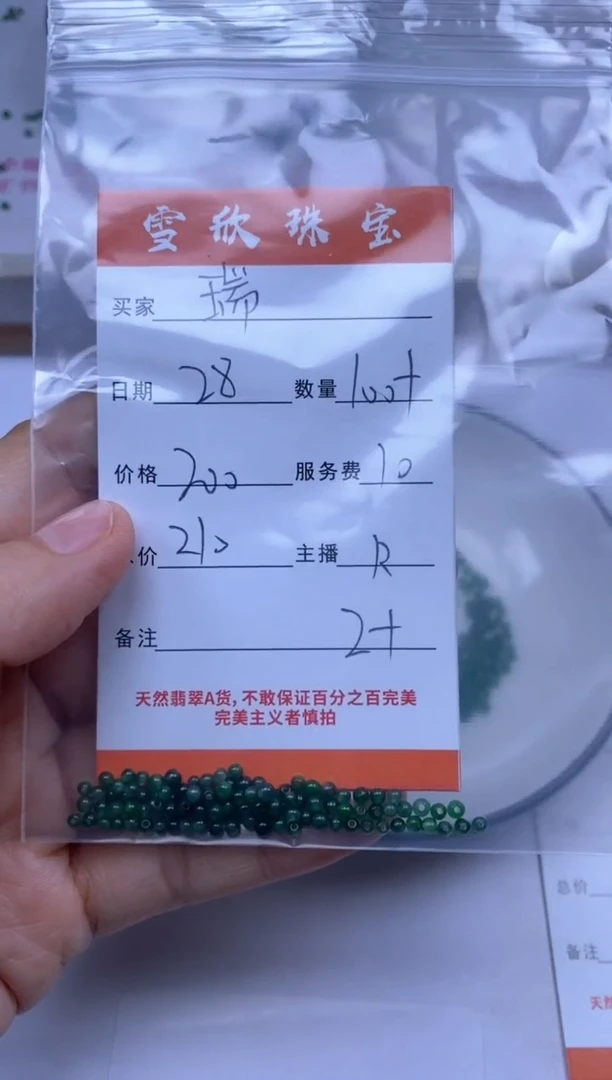 雪欣珠宝
买家 瑞
日期 28 数量 100+
价格 200 服务费 10
价 210 主播 R
备注 2+
天然翡翠A货,不敢保证百分之百完美
完美主义者慎拍
总价
备注
天然